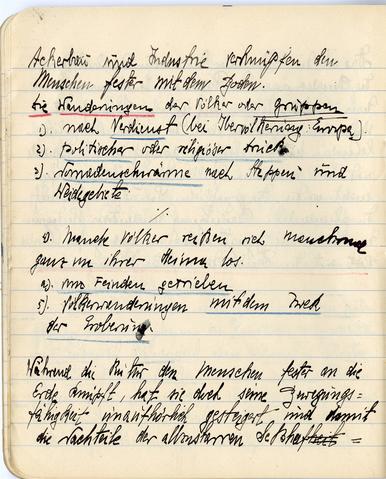 Ackerbau und Industrie verknüpfen den
Menschen fester mit dem Boden.
Die Wanderungen der Völker oder Gruppen
1). nach Verdienst (bei Übervölkerung: Europa).
2). politischer oder religiöser Druck
3) Nomadenschwärme nach Steppen und
Weidegebiete.
Manche Völker reißen sich manchmal
ganz von ihrer Heimat los.
von Feinden getrieben
5). Völkerwanderungen mit dem Zweck
der Eroberung
Während die Kultur den Menschen fester an die
Erde knüpft, hat sie doch seine Bewegungs=
fähigkeit unaufhörlich gesteigert und damit
die Nachteile der allzustarren